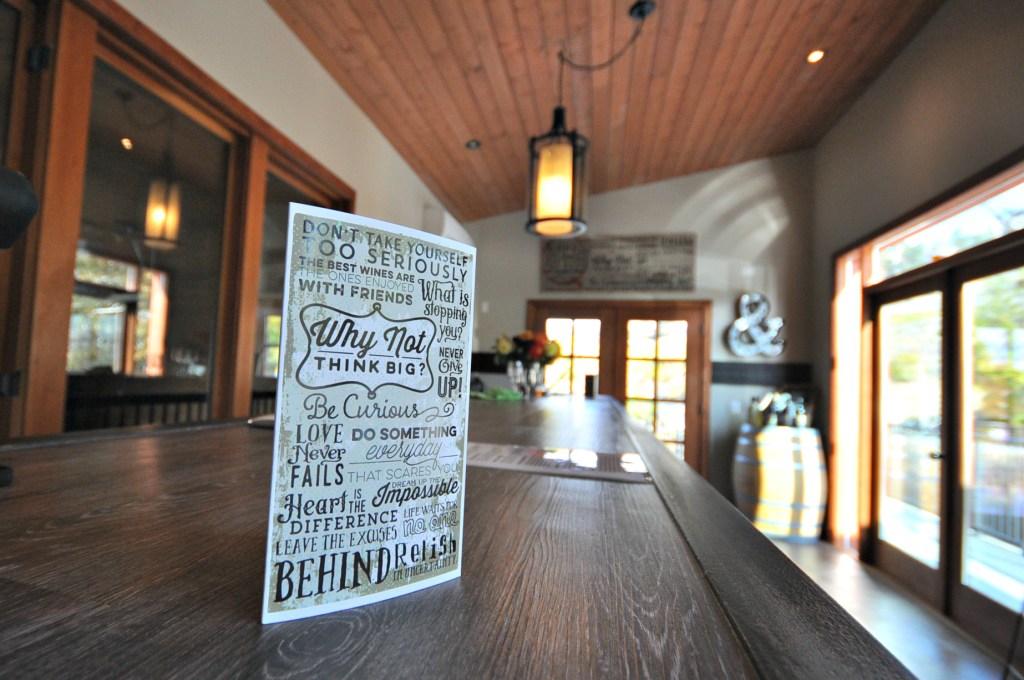 DON'T TAKE YOURSELF
TOO SERIOUSLY
THE BEST WINES ARE
THE ONES ENJOYED
WITH FRIENDS
What is
stopping
you?
Why Not
THINK BIG?
NEVER
GIVE
UP!
Be Curious
LOVE
Never
FAILS
DO SOMETHING
everyday
THAT SCARES YOU
Heart IS THE
DIFFERENCE
DREAM UP THE
Impossible
LIFE WAITS FOR
no one
LEAVE THE EXCUSES
BEHIND
Relish
IN UNCERTAINTY
&
Why Not